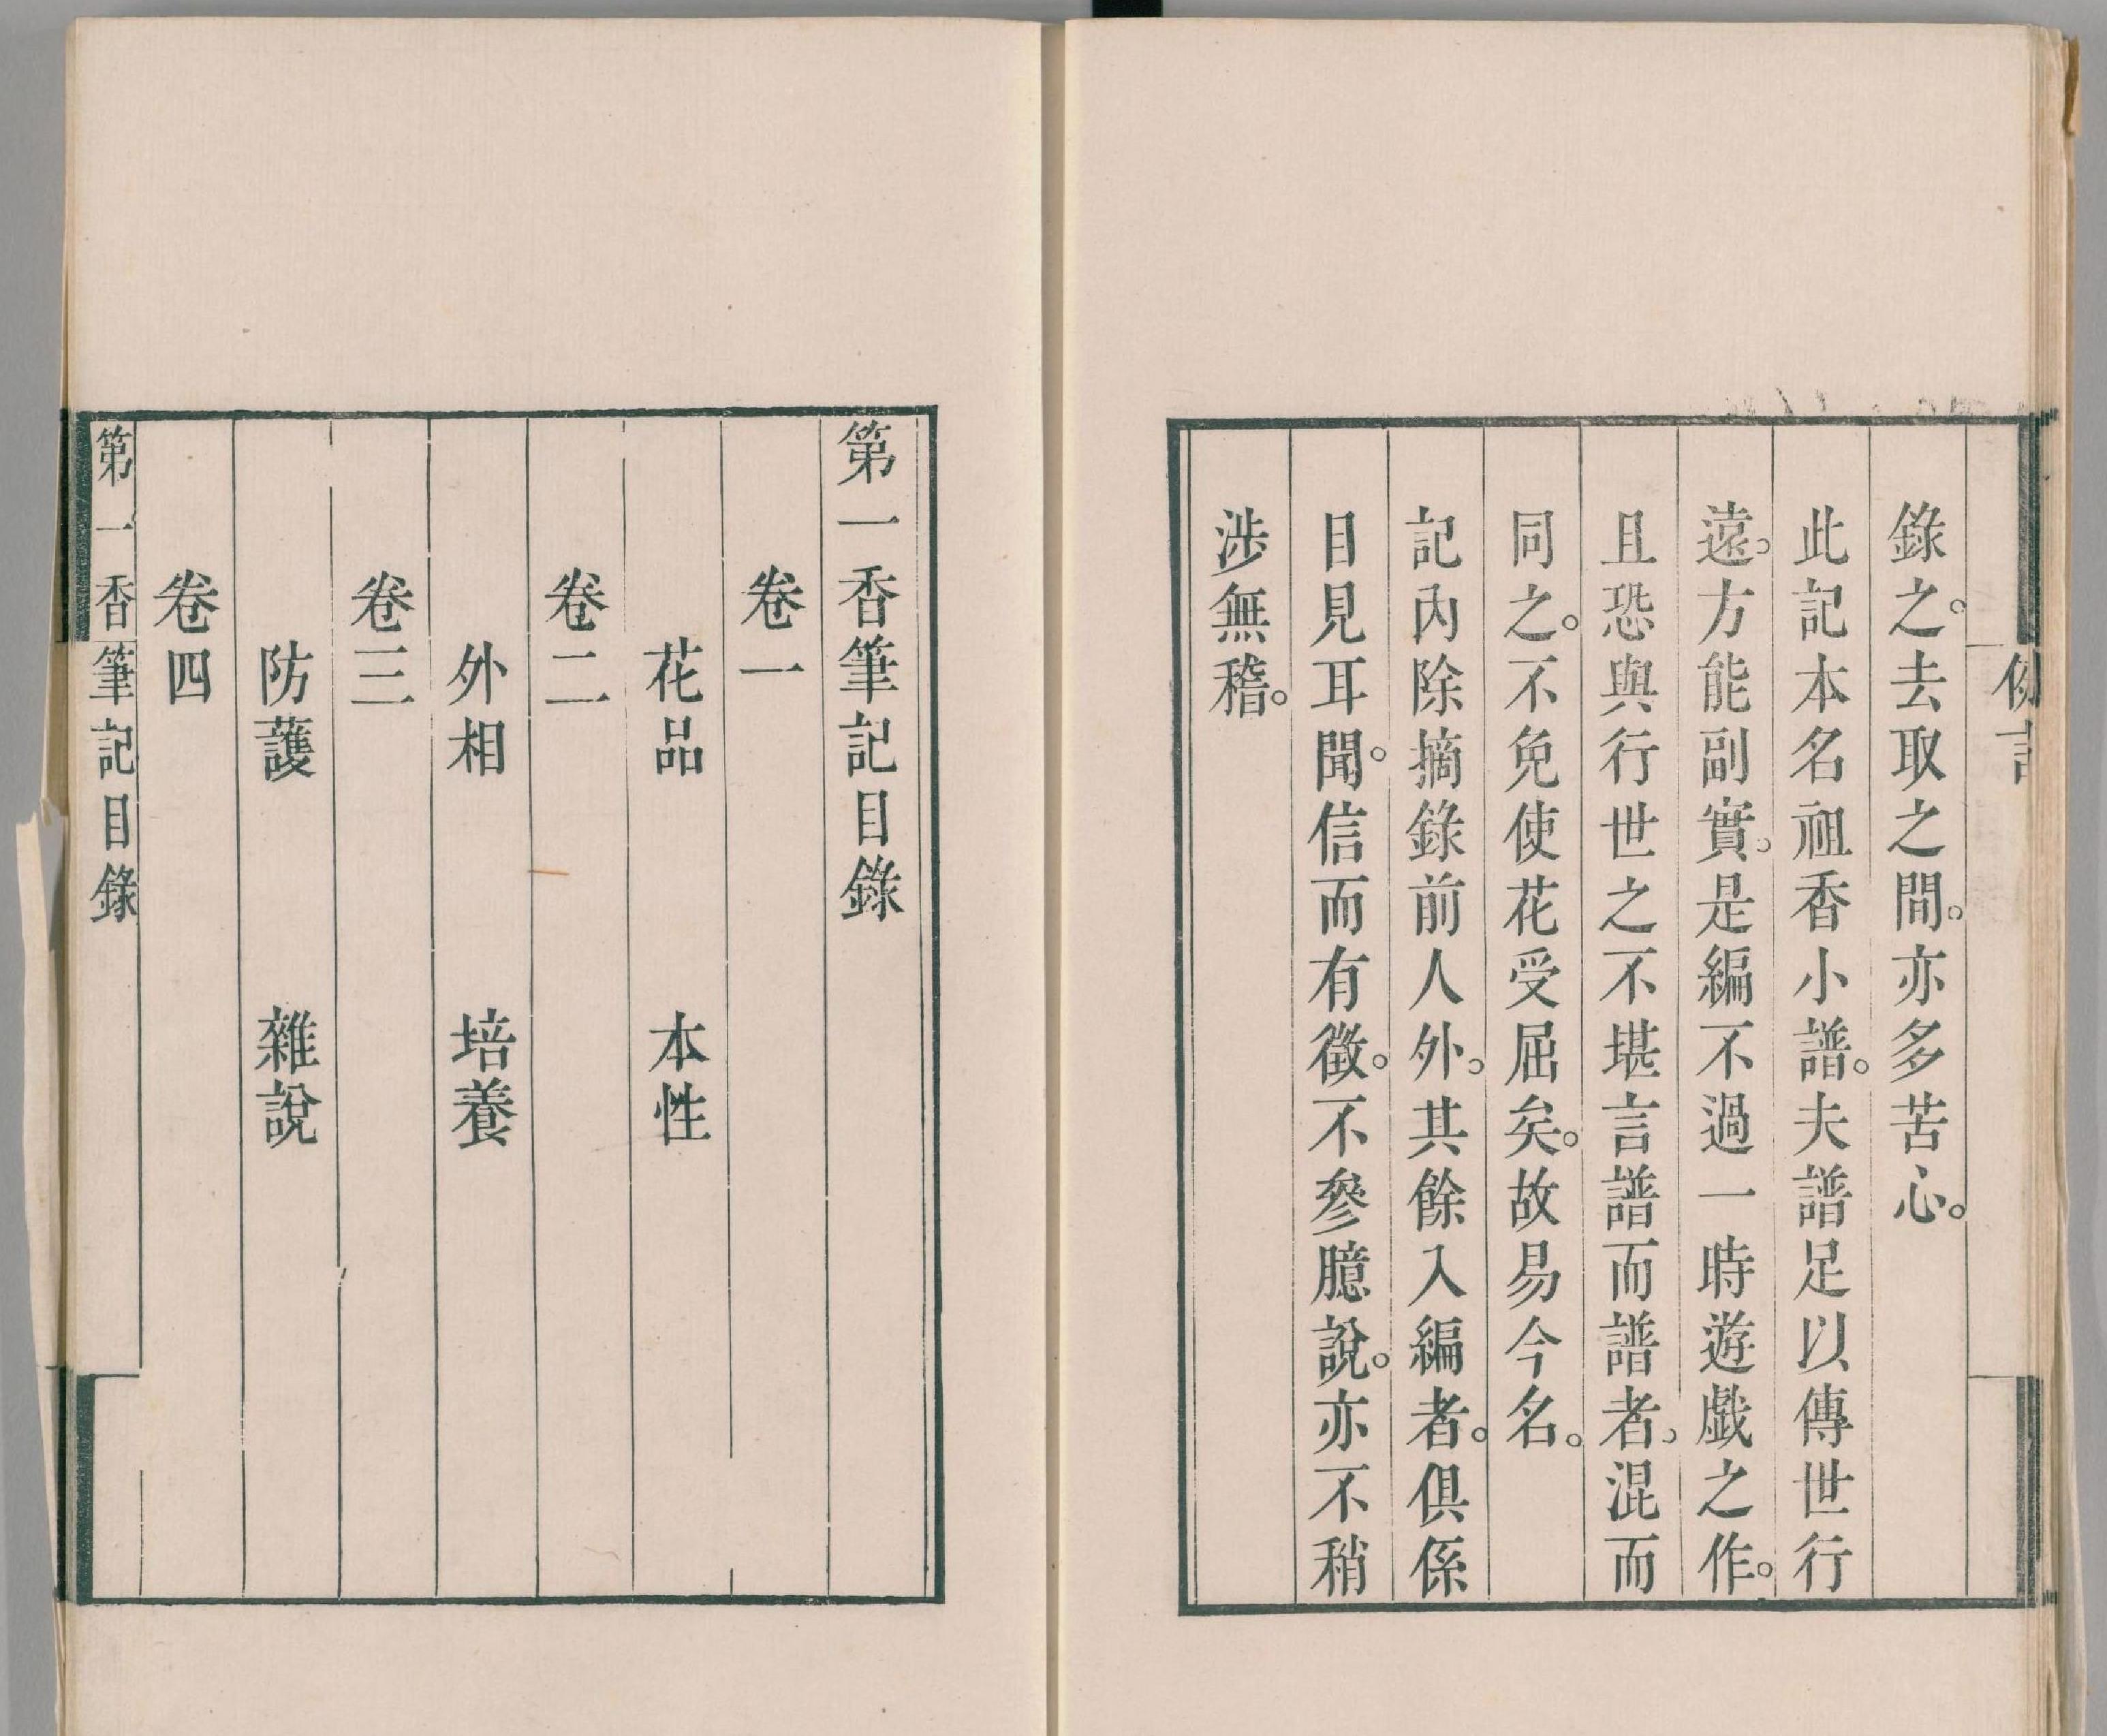 例言
錄之。去取之間。亦多苦心。
此記本名祖香小譜。夫譜足以傳世行
遠。方能副實。是編不過一時遊戲之作。
且恐與行世之不堪言譜而譜者。混而
同之。不免使花受屈矣。故易今名。
記內除摘錄前人外。其餘入編者。俱係
目見耳聞。信而有徵。不參臆說。亦不稍
涉無稽。
第一香筆記目錄
卷一
花品 本性
卷二
外相 培養
卷三
防護 雜說
卷四
第一香筆記目錄